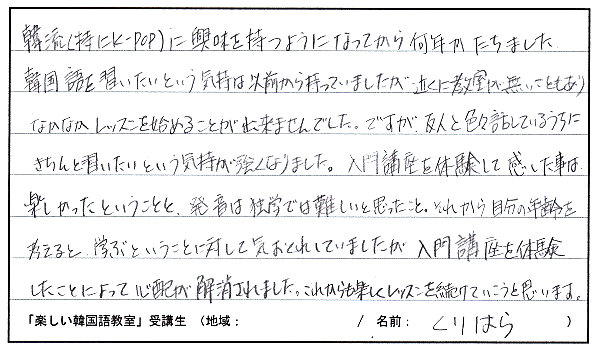 韓流(特にK-POP)に興味を持つようになってから何年かたちました
韓国語を習いたいという気持は以前から持っていましたが近くに教室が無いこともあり
なかなかレッスンを始めることが出来ませんでした。ですが、友人と色々話しているうちに
きちんと習いたいという気持が強くなりました。入門講座を体験して感じた事は
楽しかったということと、発音は独学では難しいと思ったこと。それから自分の年齢を
考えると、学ぶということに対して気おくれしていましたが入門講座を体験
したことによって心配が解消されました。これからも楽しくレッスンを続けていこうと思います。
「楽しい韓国語教室」受講生 (地域: / 名前: くりはら )